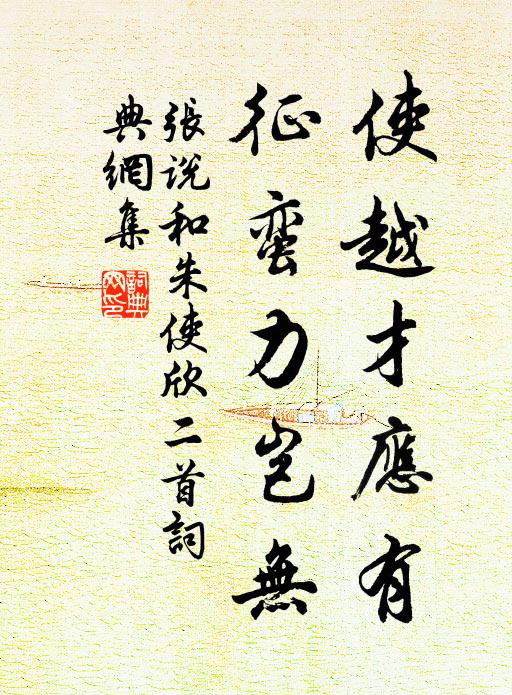 使越才應有
征蛮力岂無
張说和朱使欣二首詞
典網集
詞典
网印